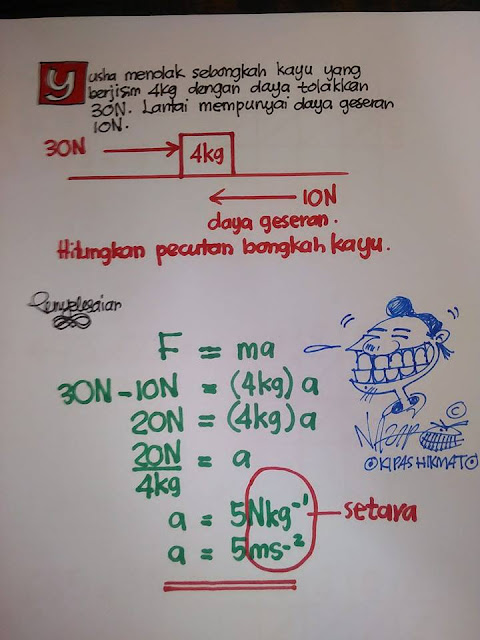 Yusha menolak sebongkah kayu yang
berjisim 4kg dengan daya tolakkan
30N. Lantai mempunyai daya geseran
10N.
30N 4kg
10N
daya geseran.
Hitungkan pecutan bongkah kayu.
Penyelesaian
F = ma
30N - 10N = (4kg) a
20N = (4kg) a
20N/4kg = a
a = 5Nkg⁻¹ setara
a = 5ms⁻²
©
©KIPASHIKMAT©